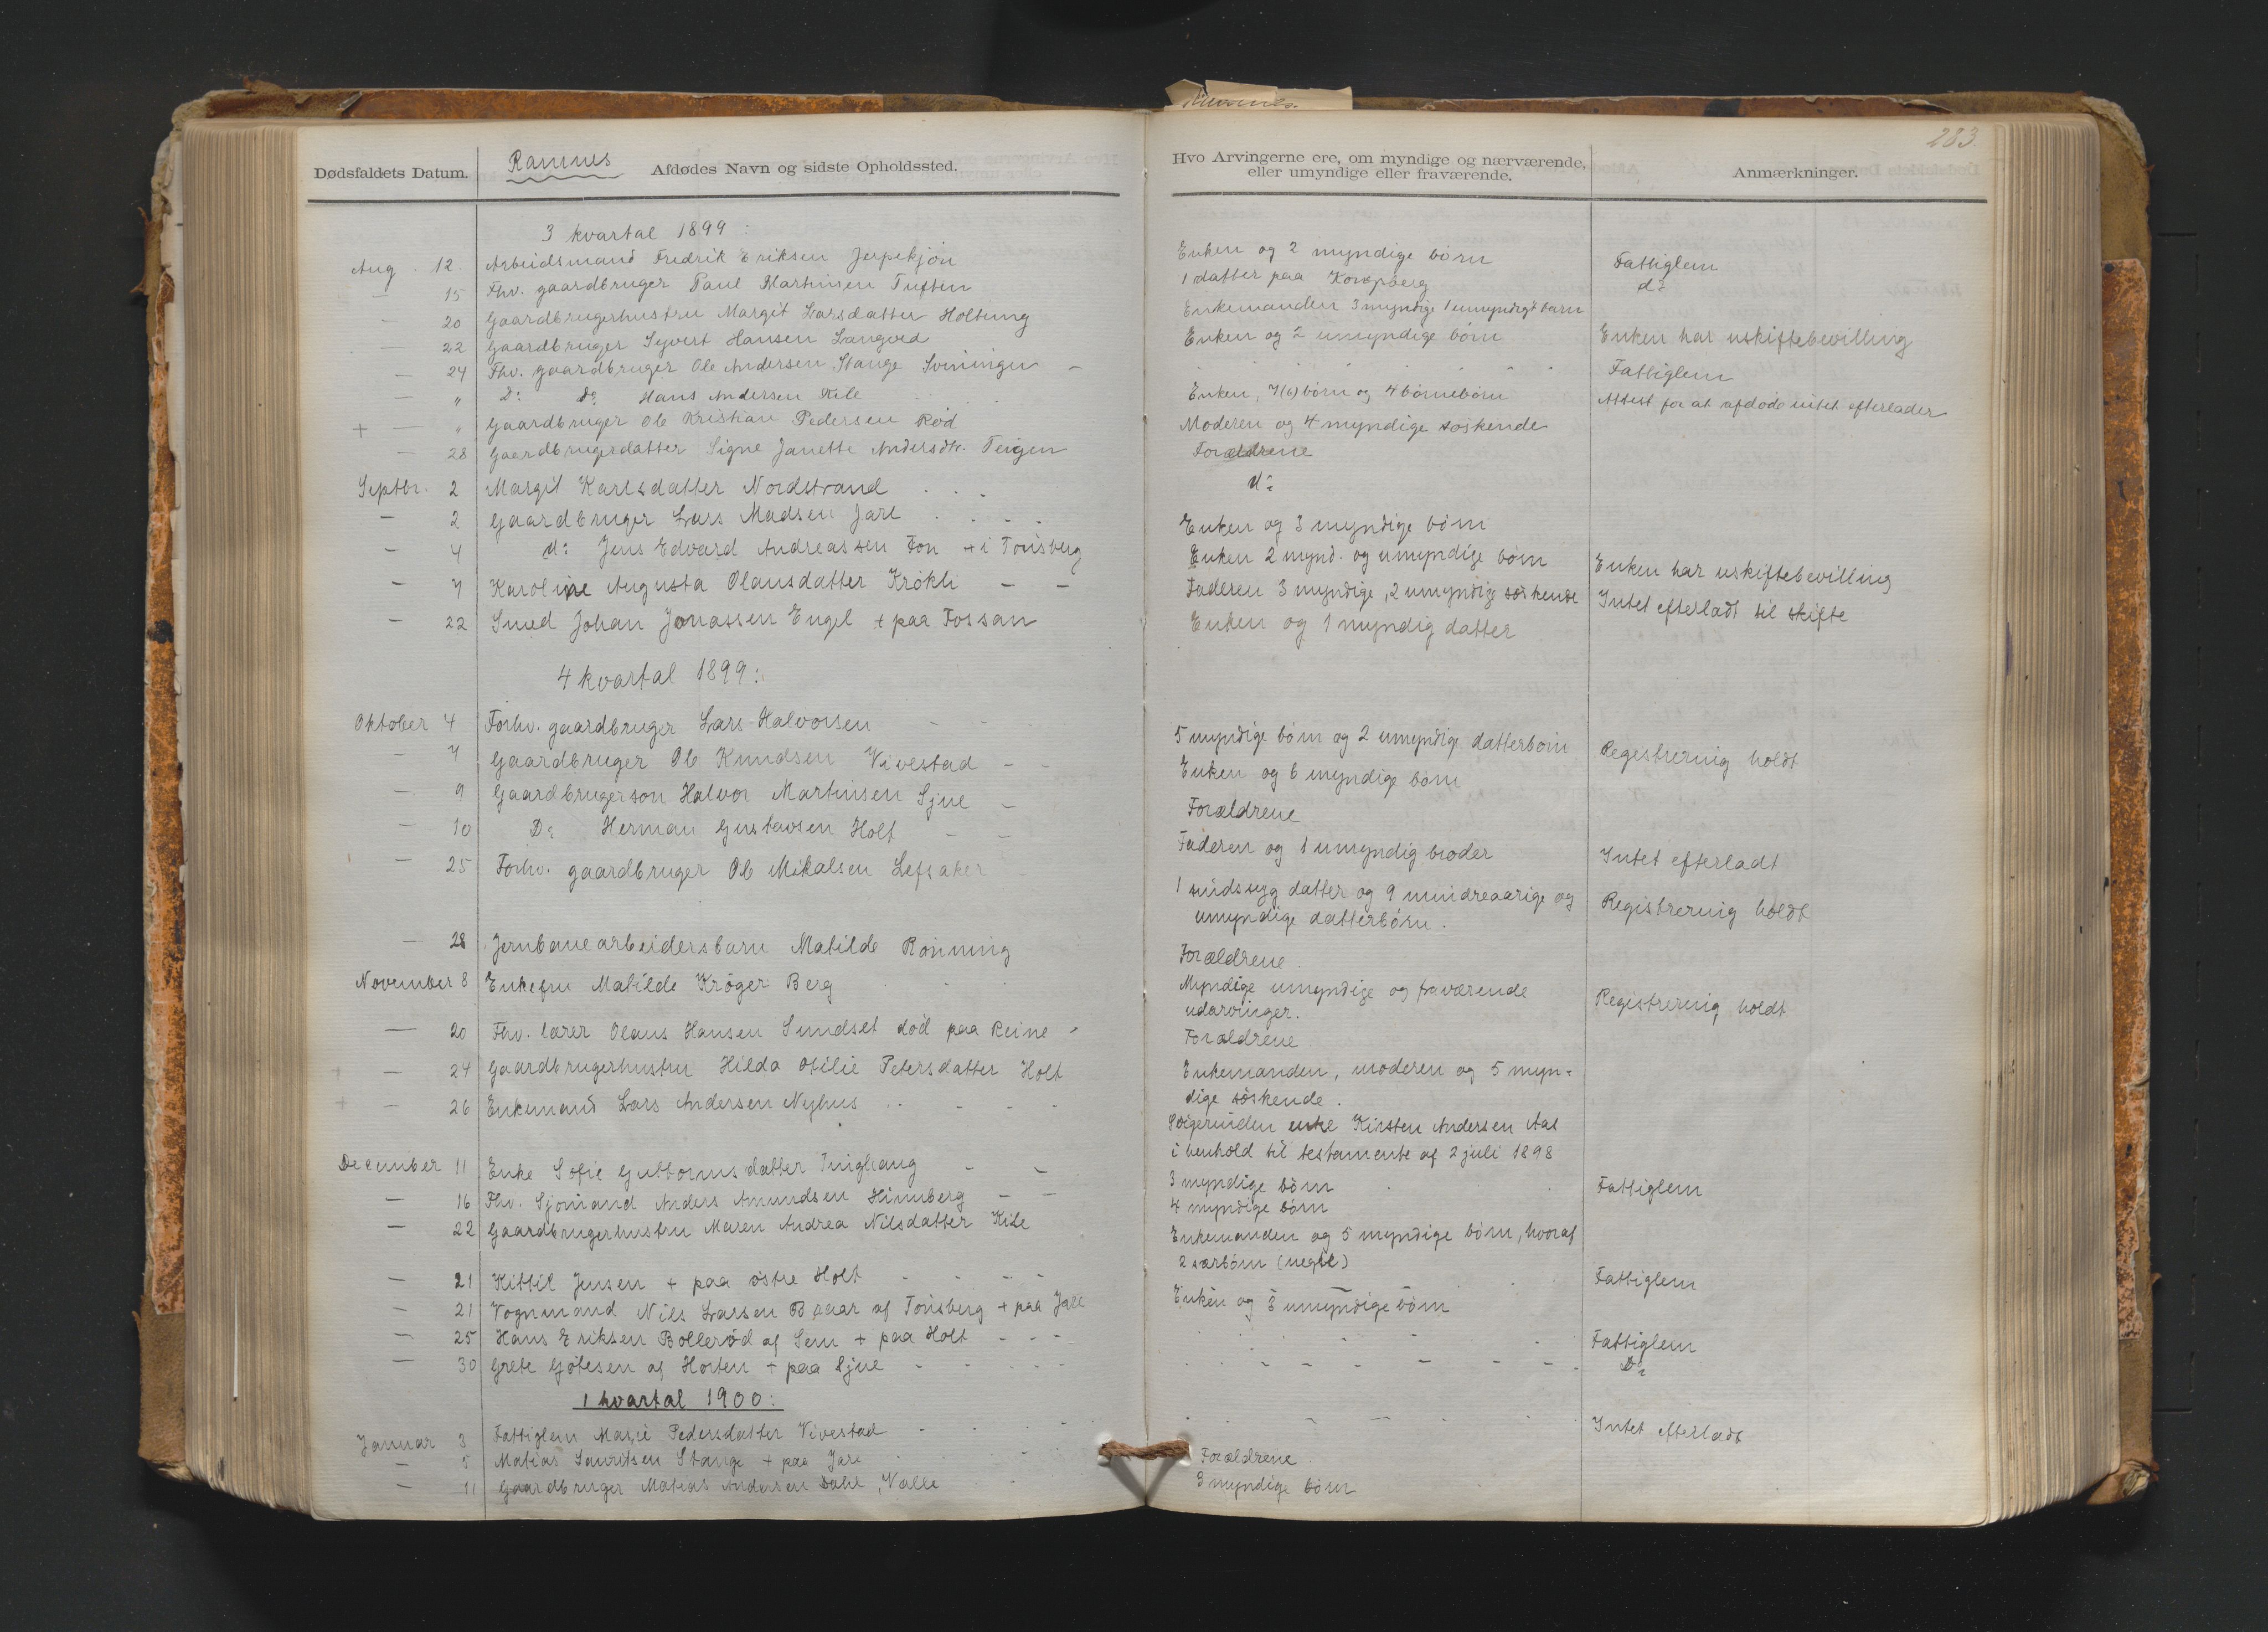 Ramnes
283
Dødsfaldets Datum.
Afdødes Navn og sidste Opholdssted.
Hvo Arvingerne ere, om myndige og nærværende,
eller umyndige eller fraværende.
Anmærkninger.
3 kvartal 1899:
Aug. 12. Arbeidsmand Fredrik Eriksen Jerpekjøn Enken og 2 myndige børn Fattiglem
— 15 Fhv. gaardbruger Paul Martinsen Tuften 1 datter paa Kongsberg d:
— 20 Gaardbrugerhustru Margit Larsdatter Holtung Enkemanden 3 myndige 1 umyndigt barn
— 22 Gaardbruger Syvert Hansen Langved Enken og 2 umyndige børn Enken har uskiftebevilling
— 24 Fhv. gaardbruger Ole Andersen Stange Sviningen - Fattiglem
— " D: d: Hans Andersen Kile Enken, 7(6) børn og 4 børnebørn Attest for at afdøde intet efterlader
+ — " Gaardbruger Ole Kristian Pedersen Rød Moderen og 4 myndige søskende
— 28 Gaardbrugerdatter Signe Janette Andersdtr. Teigen Forældrene
Septbr. 2 Margit Karlsdatter Nordstrand d:
- 2 Gaardbruger Lars Madsen Jare Enken og 3 myndige børn
- 4 d: Jens Edvard Andreassen Fon + i Tønsberg Enken 2 mynd. og umyndige børn Enken har uskiftebevilling
- 7 Karoline Augusta Olausdatter Krøkli - - Faderen 3 myndige, 2 umyndige søskende Intet efterladt til skifte
- 22 Smed Johan Jonassen Engel + paa Fossan Enken og 1 myndig datter
4 kvartal 1899:
Oktober 4 Forhv. gaardbruger Lars Halvorsen 5 myndige børn og 2 umyndige datterbørn Registrering holdt
- 7 Gaardbruger Ole Knudsen Vivestad - Enken og 6 myndige børn
- 9 Gaardbrugersøn Halvor Martinsen Sjue - Forældrene
- 10 D: Herman Gustavsen Holt - - Faderen og 1 umyndig broder Intet efterladt
- 25 Forhv. gaardbruger Ole Mikalsen Lefsaker 1 sindssyg datter og 9 mindreaarige og Registrering holdt
umyndige datterbørn.
— 28 Jernbanearbeidersbarn Matilde Rønning Forældrene.
November 8 Enkefru Matilde Krøger Berg Myndige umyndige og fraværende Registrering holdt
udarvinger.
— 20 Fhv. lærer Olaus Hansen Sundset død paa Reine - Forældrene
+ — 24 Gaardbrugerhustru Hilda Otilie Petersdatter Holt Enkemanden, moderen og 5 myn-
dige søskende.
+ - 26 Enkemand Lars Andersen Nyhus Svigerinden enke Kirsten Andersen Aas
i henhold til testamente af 2 juli 1898
December 11 Enke Sofie Guttormsdatter - - 3 myndige børn Fattiglem
— 16 Fhv. Sjømand Anders Amundsen Himberg - - 4 myndige børn
- 22 Gaardbrugerhustru Maren Andrea Nilsdatter Kile Enkemanden og 5 myndige børn, hvoraf
2 særbørn (uegte)
— 21 Kittil Jensen + paa østre Holt Fattiglem
- 21 Vognmand Nils Larsen Baaar af Tønsberg + paa Jare Enken og 8 umyndige børn
— 25 Hans Eriksen Bollerød af Sem + paa Holt - - - Fattiglem
— 30 Grete Gøtesen af Horten + paa Sjue D:
1 kvartal 1900:
Januar 3 Fattiglem Marie Pedersdatter Vivestad Intet efterladt
— 5 Matias Lauritsen Stange + paa Jare Forældrene
— 11 Gaardbruger Matias Andersen Dahl, Valle 3 myndige børn